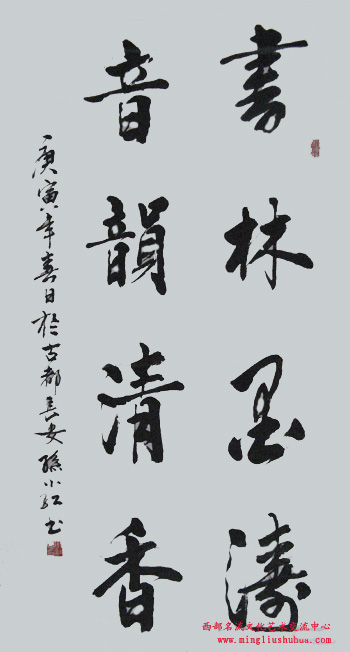 書林墨濤
音韻清香
庚寅年春日於古都長安孫小紅书
西部名家文化艺术交流中心
www.mingliushuhua.com